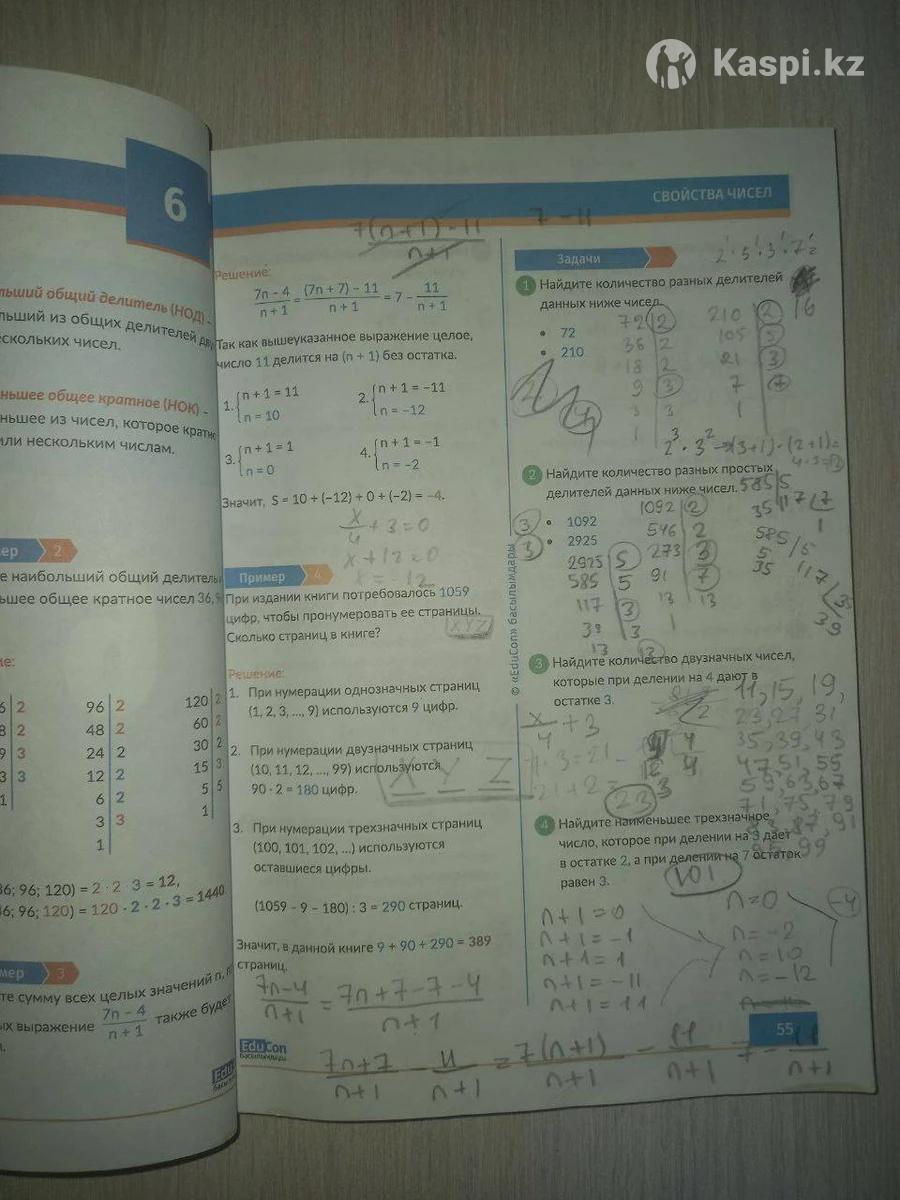 Kaspi.kz
6
льший общий делитель (НОД) -
льший из общих делителей дву
ескольких чисел.
ньшее общее кратное (НОК) -
ньшее из чисел, которое кратно
или нескольким числам.
мер 2
е наибольший общий делитель
ньшее общее кратное чисел 36, 9
ие:
6 2 96 2 120 2
8 2 48 2 60 2
9 3 24 2 30 2
3 3 12 2 15 3
1 6 2 5 5
3 3 1
1
36; 96; 120) = 2 · 2 · 3 = 12,
6; 96; 120) = 120 · 2 · 2 · 3 = 1440
мер 3
те сумму всех целых значений n, п
ых выражение (7n – 4)/(n + 1) также будет
EduCon
СВОЙСТВА ЧИСЕЛ
7(n+1)-11
n+1
7-11
Решение:
(7n – 4)/(n + 1) = ((7n + 7) – 11)/(n + 1) = 7 – 11/(n + 1)
Так как вышеуказанное выражение целое,
число 11 делится на (n + 1) без остатка.
1. {n + 1 = 11 2. {n + 1 = –11
n = 10 n = –12
3. {n + 1 = 1 4. {n + 1 = –1
n = 0 n = –2
Значит, S = 10 + (–12) + 0 + (–2) = –4.
x/4 + 3 = 0
x + 12 = 0
x = -12
Пример 4
При издании книги потребовалось 1059
цифр, чтобы пронумеровать ее страницы.
Сколько страниц в книге?
XYZ
Решение:
1. При нумерации однозначных страниц
(1, 2, 3, ..., 9) используются 9 цифр.
2. При нумерации двузначных страниц
(10, 11, 12, ..., 99) используются
90 · 2 = 180 цифр.
X Y Z
3. При нумерации трехзначных страниц
(100, 101, 102, ...) используются
оставшиеся цифры.
(1059 – 9 – 180) : 3 = 290 страниц.
Значит, в данной книге 9 + 90 + 290 = 389
страниц.
(7n-4)/(n+1) = (7n+7-7-4)/(n+1)
EduCon
басылымдары
(7n+7)/(n+1) - 11/(n+1) = 7(n+1)/(n+1) - 11/(n+1) 7 - 11/(n+1)
© «EduCon» басылымдары
Задачи
2¹·5¹·3¹·7¹=
16
1 Найдите количество разных делителей
данных ниже чисел.
• 72
• 210
72 2 210 2
36 2 105 5
18 2 21 3
9 3 7 7
3 3 1
1
2³·3² → (3+1)·(2+1)=
4·3=12
2 Найдите количество разных простых
делителей данных ниже чисел.
• 1092
• 2925
3
3
1092 2
546 2
273 3
91 7
13 13
1
2925 5
585 5
117 3
39 3
13 13
585 5
35 117
585 5
5 117
35
39
3 Найдите количество двузначных чисел,
которые при делении на 4 дают в
остатке 3.
x/4 + 3
7·3=21
21+2=23
11, 15, 19,
23, 27 31
35, 39, 43
47, 51, 55
59, 63, 67
71, 75, 79
83, 87, 91
95, 99
4 Найдите наименьшее трехзначное
число, которое при делении на 3 дает
в остатке 2, а при делении на 7 остаток
равен 3.
101
n+1=0 n=0 -4
n+1=-1 n=-2
n+1=1 n=10
n+1=-11 n=-12
n+1=11
55